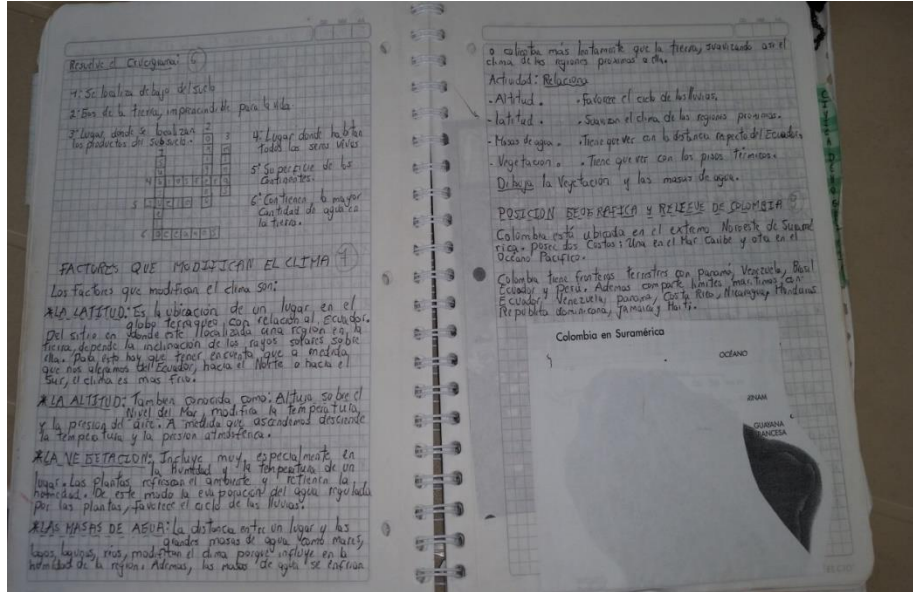 Resuelve el Crucigrama: 6
1: Se localiza debajo del suelo
2: Eva de la tierra, imprescindible para la vida
3: Lugar donde se localizan
los productos del subsuelo.
4: Lugar donde habitan
todos los seres vivos
5: Superficie de los
Continentes.
6: Contienen la mayor
Cantidad de agua en
la tierra.
FACTORES QUE MODIFICAN EL CLIMA 7
Los factores que modifican el clima son:
*LA LATITUD: Es la ubicación de un lugar en el
globo terraqueo con relación al Ecuador.
Del sitio en donde este localizada una región en la
tierra, depende la inclinación de los rayos solares sobre
ella. Para esto hay que tener encuenta que a medida
que nos alejamos del Ecuador, hacia el Norte o hacia el
Sur, el clima es mas frio.
*LA ALTITUD: Tambien conocida como: Altura sobre el
Nivel del Mar, modifica la temperatura
y la presion del aire. A medida que ascendemos desciende
la temperatura y la presion atmosferica.
*LA VEGETACION: Incluye muy especialmente en
la Humedad y la temperatura de un
lugar. Las plantas refrescan el ambiente y retienen la
humedad. De este modo la evaporación del agua regulada
por las plantas, favorece el ciclo de las lluvias.
*LAS MASAS DE AGUA: La distancia entre un lugar y las
grandes masas de agua como mares,
lagos, lagunas, rios, modifican el clima porque influye en la
humedad de la región. Ademas, las masas de agua se enfrian
o calientan más lentamente que la tierra, suavizando asi el
clima de las regiones proximas a ella.
Actividad: Relaciona
- Altitud. . Favorece el ciclo de las lluvias.
- latitud. . Suavizan el clima de las regiones proximas.
- Masas de agua. . Tiene que ver con la distancia respecto del Ecuador
- Vegetacion. . Tiene que ver con los pisos termicos.
Dibuja la Vegetación y las masas de agua.
POSICION GEOGRAFICA Y RELIEVE DE COLOMBIA 8
Colombia está ubicada en el extremo Noroeste de Suramé
rica. posee dos Costas: Una en el Mar Caribe y otra en el
Océano Pacífico.
Colombia tiene fronteras terrestres con Panamá, Venezuela, Brasil
Ecuador y Perú. Ademas comparte limites maritimos con
Ecuador, Venezuela, panamá, Costa Rica, Nicaragua, Honduras
Republica dominicana, jamaica y Haiti.
Colombia en Suramérica
OCÉANO
INAM
GUAYANA